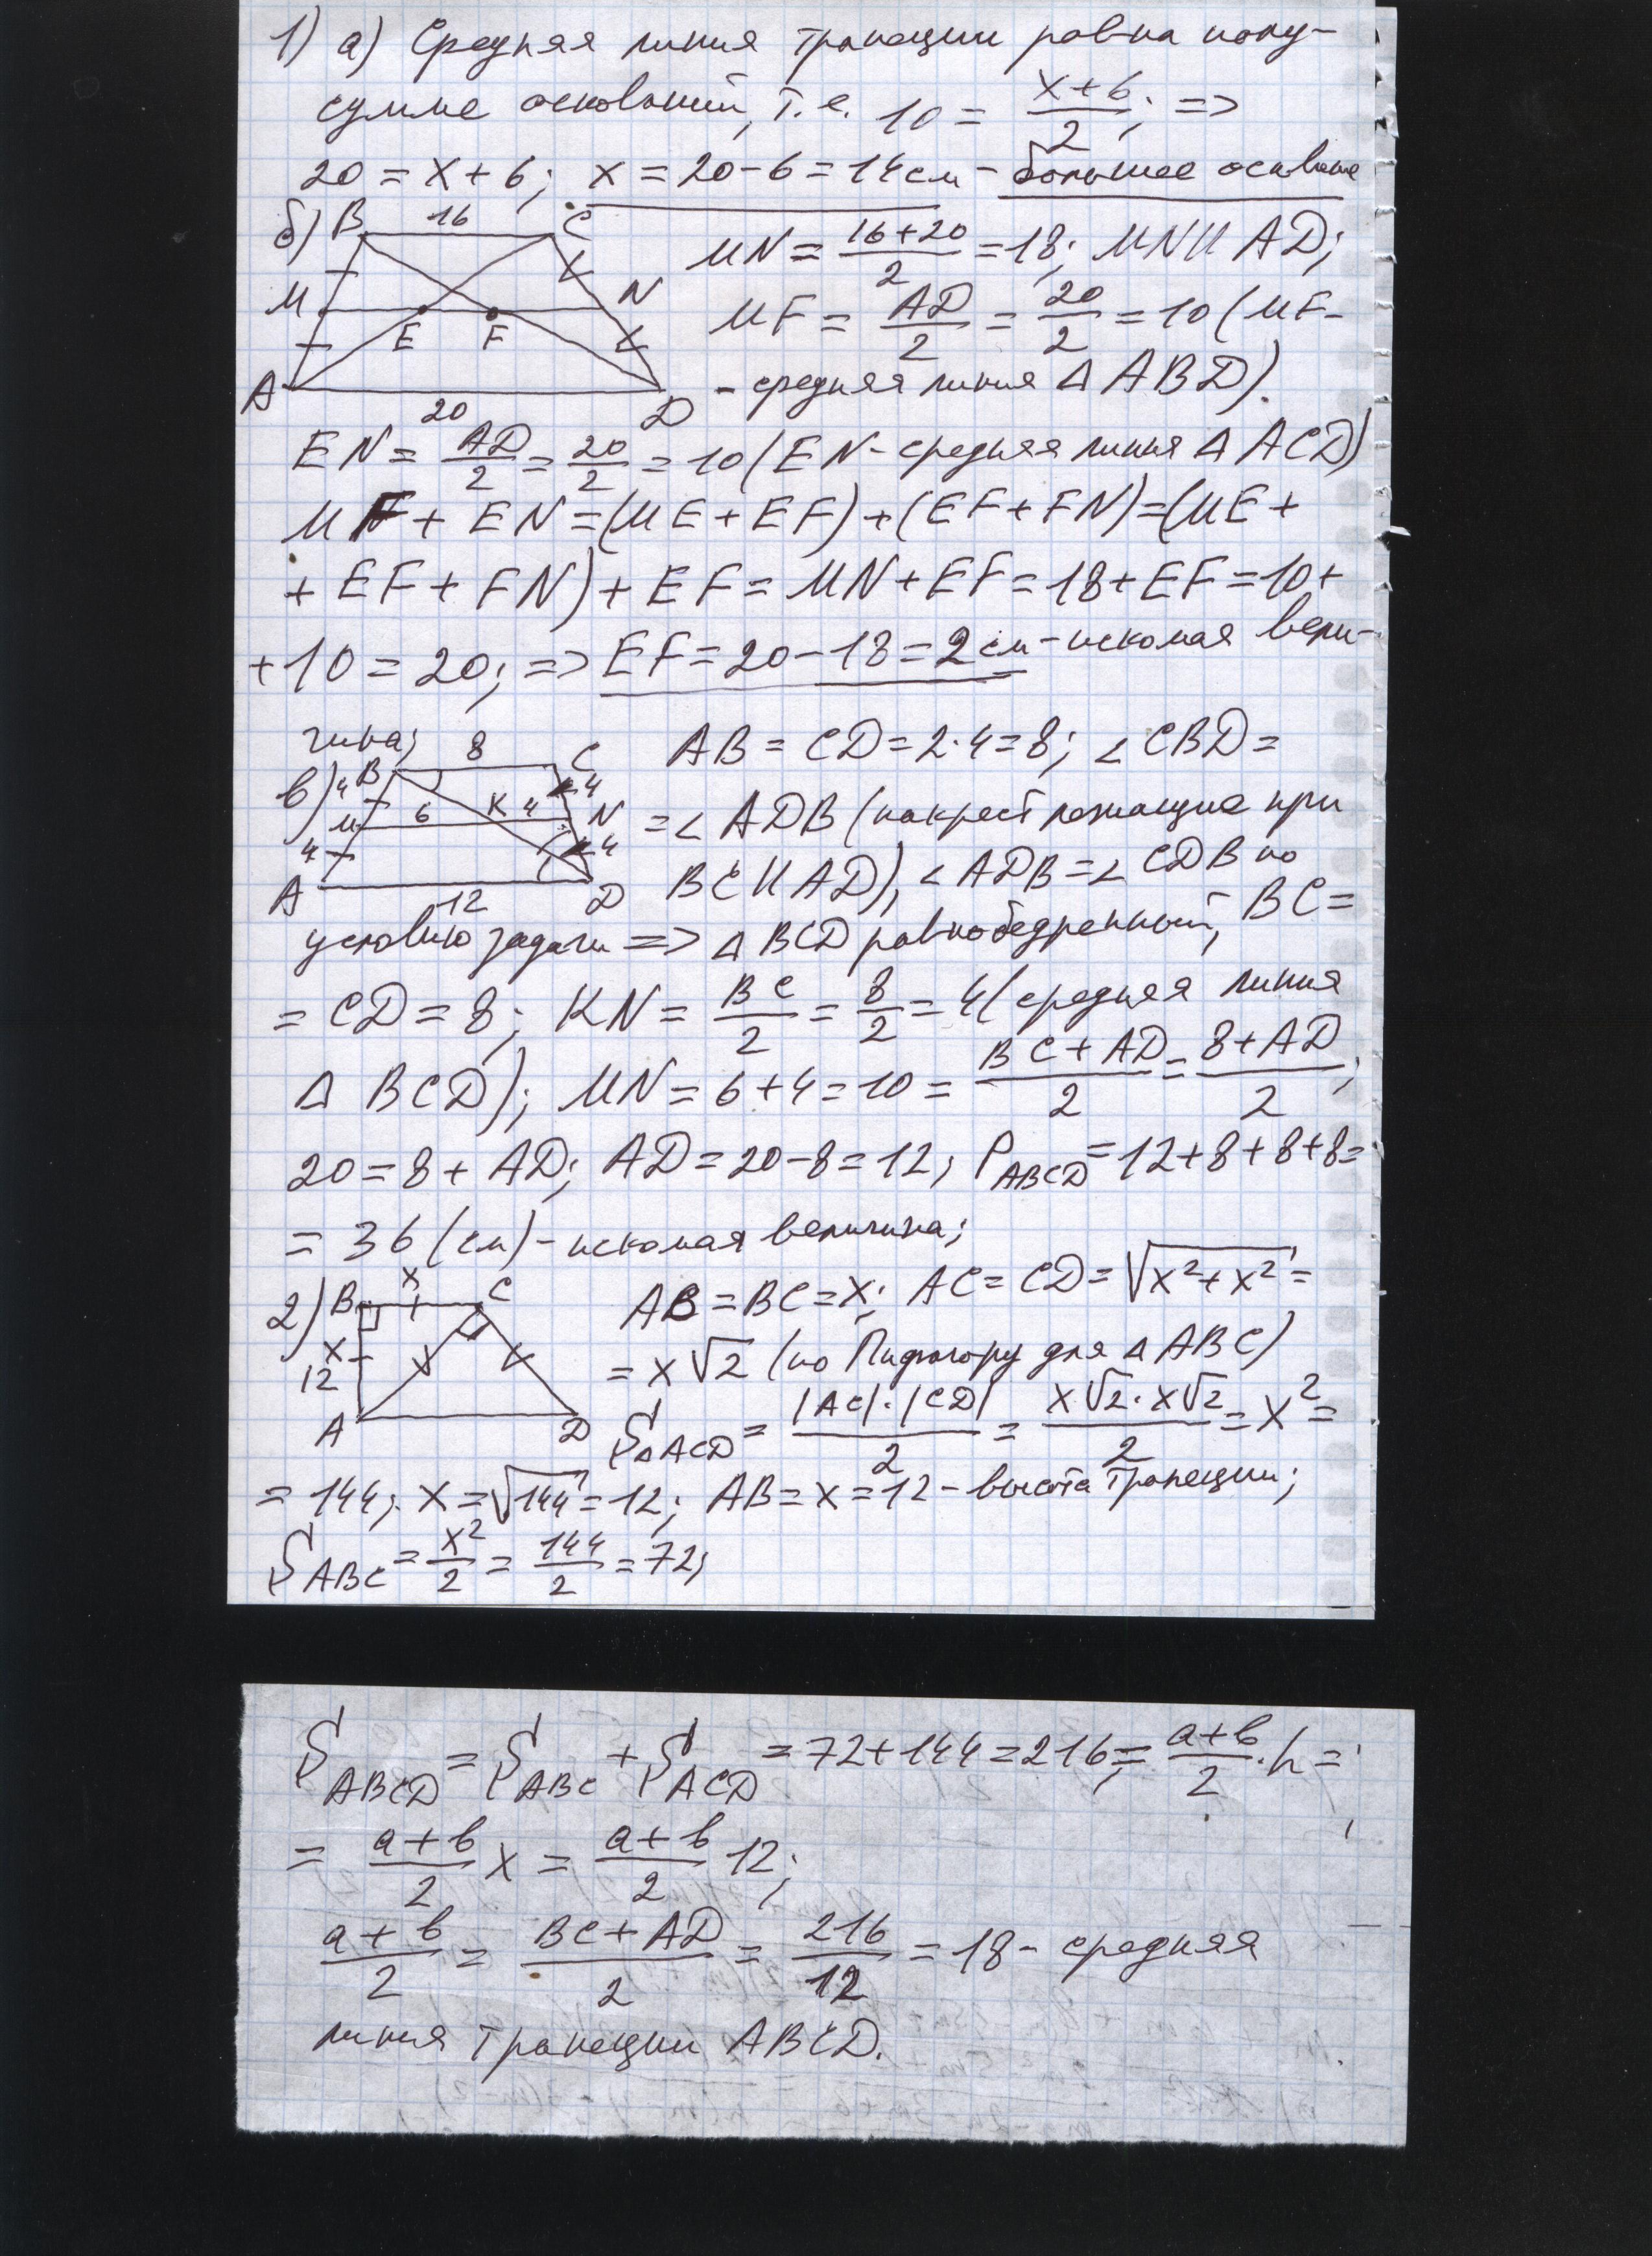 1) а) Средняя линия трапеции равна полу-
сумме оснований, т.е. 10 = (x+6)/2; =>
20 = x + 6; x = 20 - 6 = 14 см - большее основание
б) B 16 C M N E F A 20 D
MN = (16+20)/2 = 18; MN || AD;
MF = AD/2 = 20/2 = 10 (MF-
- средняя линия Δ ABD).
EN = AD/2 = 20/2 = 10 (EN - средняя линия Δ ACD)
MF + EN = (ME + EF) + (EF + FN) = (ME +
+ EF + FN) + EF = MN + EF = 18 + EF = 10 +
+ 10 = 20; => EF = 20 - 18 = 2 см - искомая вели-
чина;
в) 4 B 8 C 4 M 6 K 4 N 4 4 A 12 D
AB = CD = 2·4 = 8; ∠ CBD =
= ∠ ADB (накрест лежащие при
BC || AD), ∠ ADB = ∠ CDB по
условию задачи => Δ BCD равнобедренный, BC =
= CD = 8; KN = BC/2 = 8/2 = 4 (средняя линия
Δ BCD); MN = 6 + 4 = 10 = (BC + AD)/2 = (8 + AD)/2;
20 = 8 + AD; AD = 20 - 8 = 12; P ABCD = 12 + 8 + 8 + 8 =
= 36 (см) - искомая величина;
2) B x C x 12 A D
AB = BC = x; AC = CD = √(x² + x²) =
= x√2 (по Пифагору для Δ ABC)
S ΔACD = |AC|·|CD|/2 = x√2·x√2/2 = x² =
= 144; x = √144 = 12; AB = x = 12 - высота трапеции;
S ABC = x²/2 = 144/2 = 72;
S ABCD = S ABC + S ACD = 72 + 144 = 216; = (a+b)/2 · h =
= (a+b)/2 x = (a+b)/2 12;
(a+b)/2 = (BC+AD)/2 = 216/12 = 18 - средняя
линия трапеции ABCD.